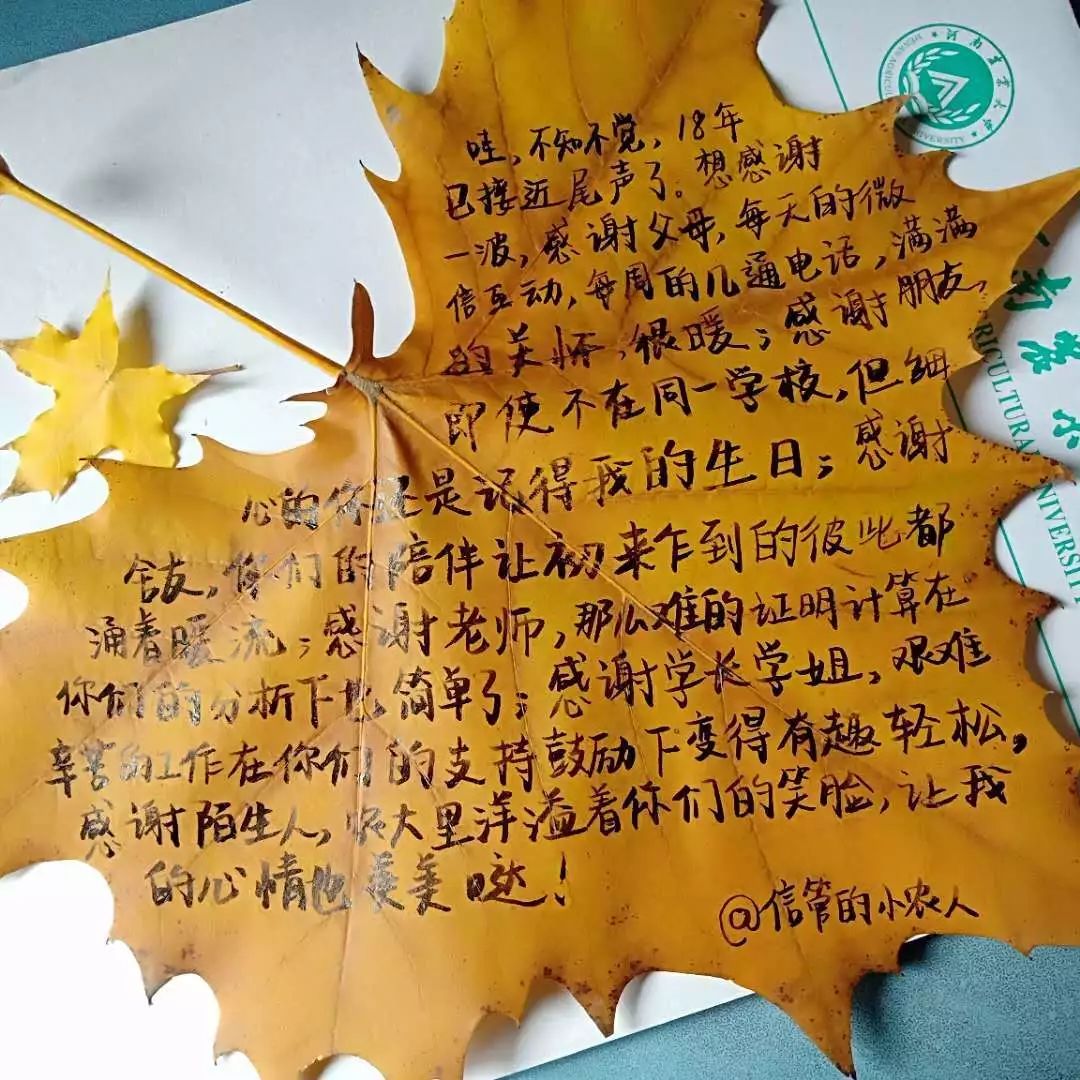 哇，不知不觉，18年
已接近尾声了。想感谢
一波，感谢父母，每天的微
信互动，每周的几通电话，满满
的关怀，很暖；感谢朋友，
即使不在同一学校，但细
心的你还是记得我的生日；感谢
舍友，你们的陪伴让初来乍到的彼此都
涌着暖流；感谢老师，那么难的证明计算在
你们的分析下也简单了；感谢学长学姐，艰难
辛苦的工作在你们的支持鼓励下变得有趣轻松，
感谢陌生人，农大里洋溢着你们的笑脸，让我
的心情也美美哒！
@信管的小农人
河南农业大学
UNIVERSITY
南农业大
RICULTURAL UNIVERSITY